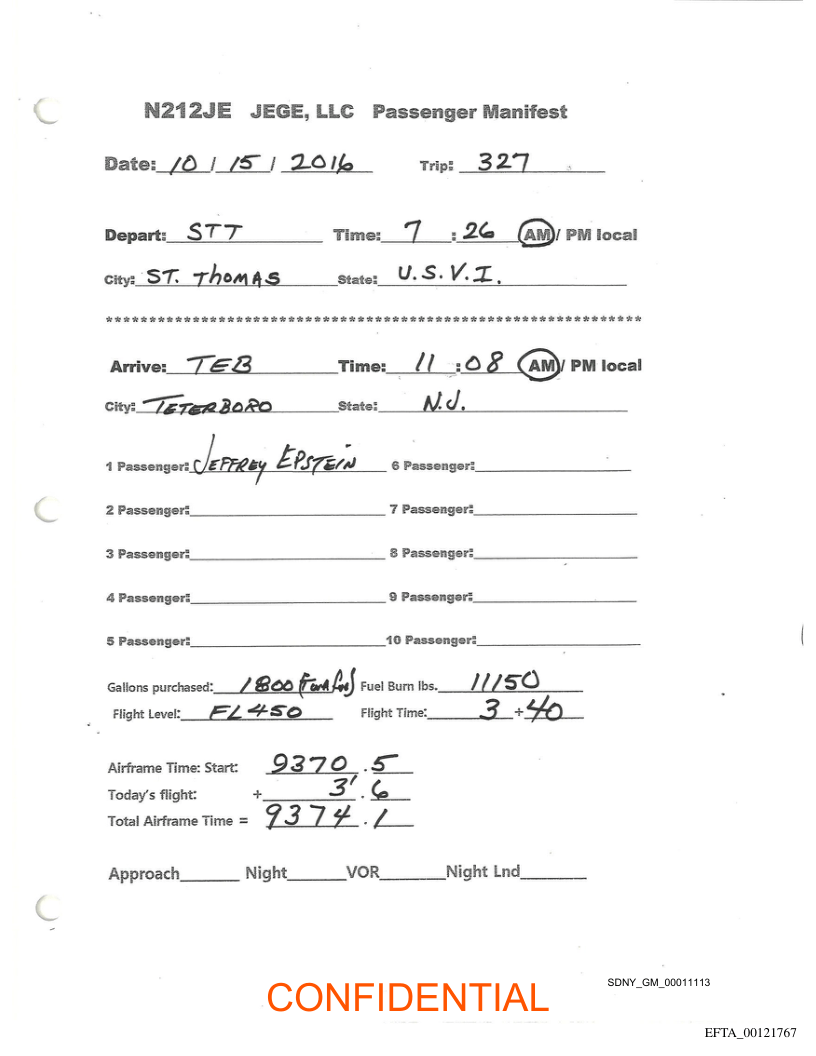 N212JE JEGE, LLC Passenger Manifest
Date: 10 / 15 / 2016 Trip: 327
Depart: STT Time: 7 : 26 AM/ PM local
City: ST. Thomas State: U.S.V.I.
**************************************************************
Arrive: TEB Time: 11 : 08 AM/ PM local
City: TETERBORO State: N.J.
1 Passenger: JEFFREY EPSTEIN 6 Passenger:
2 Passenger: 7 Passenger:
3 Passenger: 8 Passenger:
4 Passenger: 9 Passenger:
5 Passenger: 10 Passenger:
Gallons purchased: 1800 Fuel Burn lbs. 11150
Flight Level: FL450 Flight Time: 3 + 40
Airframe Time: Start: 9370 . 5
Today's flight: + 3 . 6
Total Airframe Time = 9374 . 1
Approach Night VOR Night Lnd
SDNY_GM_00011113
CONFIDENTIAL
EFTA_00121767